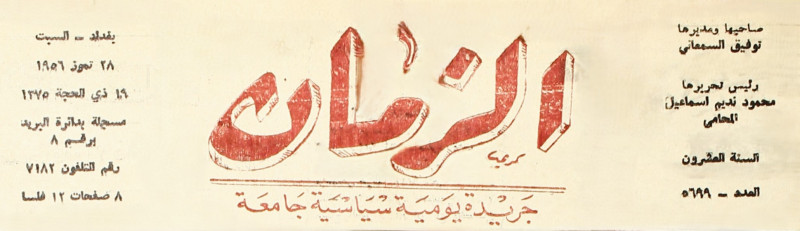 صاحبها ومديرها
توفيق السمعاني
رئيس تحريرها
محمود نديم اسماعيل
المحامي
السنة العشرون
العدد – ٥٦٩٩
الزمان
كريم
جريدة يومية سياسية جامعة
بغداد – السبت
٢٨ تموز ١٩٥٦
١٩ ذي الحجة ١٣٧٥
مسجلة بدائرة البريد
برقم ٨
رقم التلفون ٧١٨٢
٨ صفحات ١٢ فلسا